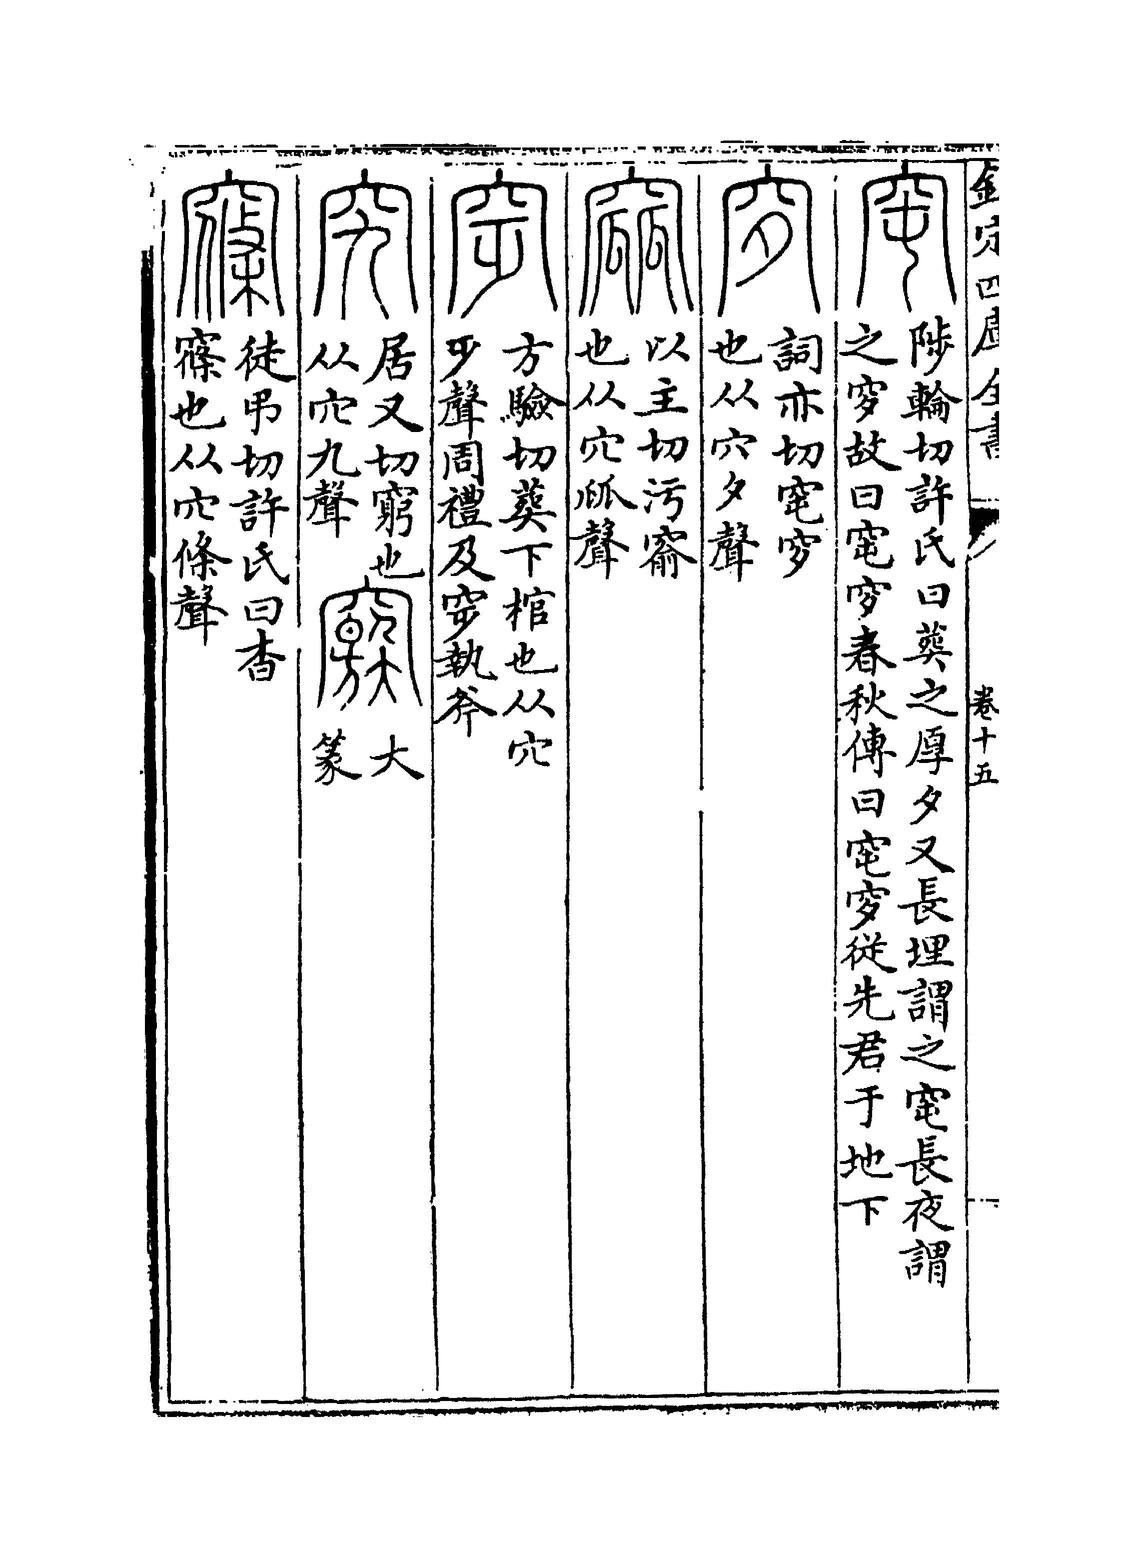 欽定四庫全書 卷十五
窀
陟輪切許氏曰葬之厚夕又長埋謂之窀長夜謂
之穸故曰窀穸春秋傳曰窀穸從先君于地下
穸
詞亦切窀穸
也从穴夕聲
窳
以主切污窬
也从穴㼌聲
窆
方驗切葬下棺也从穴
乏聲周禮及窆執斧
究
居又切窮也
从穴九聲
大
篆
窱
徒弔切許氏曰杳
窱也从穴條聲